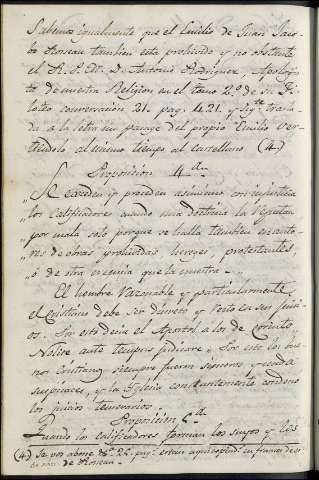 Sabemos igualmente que el Emilio de Juan Jaco-
bo Roseau tambien está prohivido y no obstante
el R. P. M. D. Antonio Rodriguez, Apologis-
ta de nuestra Religion en el tomo 2º de su Phi-
loteo conversacion 21. pag. 421. y sigte trasla-
da a la letra un pasage del propio Emilio ver-
tiendolo al mismo tiempo al castellano (4)
Proposicion 4ta
„ Se exceden y proceden asimismo con injusticia
„ los calificadores quando una doctrina la reputan
„ por mala solo porque se halla tambien en auto-
„ res de obras prohividas hereges, protestantes,
„ ó de otra creencia que la nuestra. „
El hombre razonable y particularmente
el Cristiano debe ser discreto y recto en sus juici-
os. Por esto decia el Apostol a los de Corinto
Nolite ante tempus judicare. Por esto los bue-
nos Cristianos siempre fueron sinceros y nada
suspicaces, y la Iglesia constantemente condenó
los juicios temerarios.
Proposicion 5a
Quando los calificadores forman los suyos y les
(4) de Roseau.